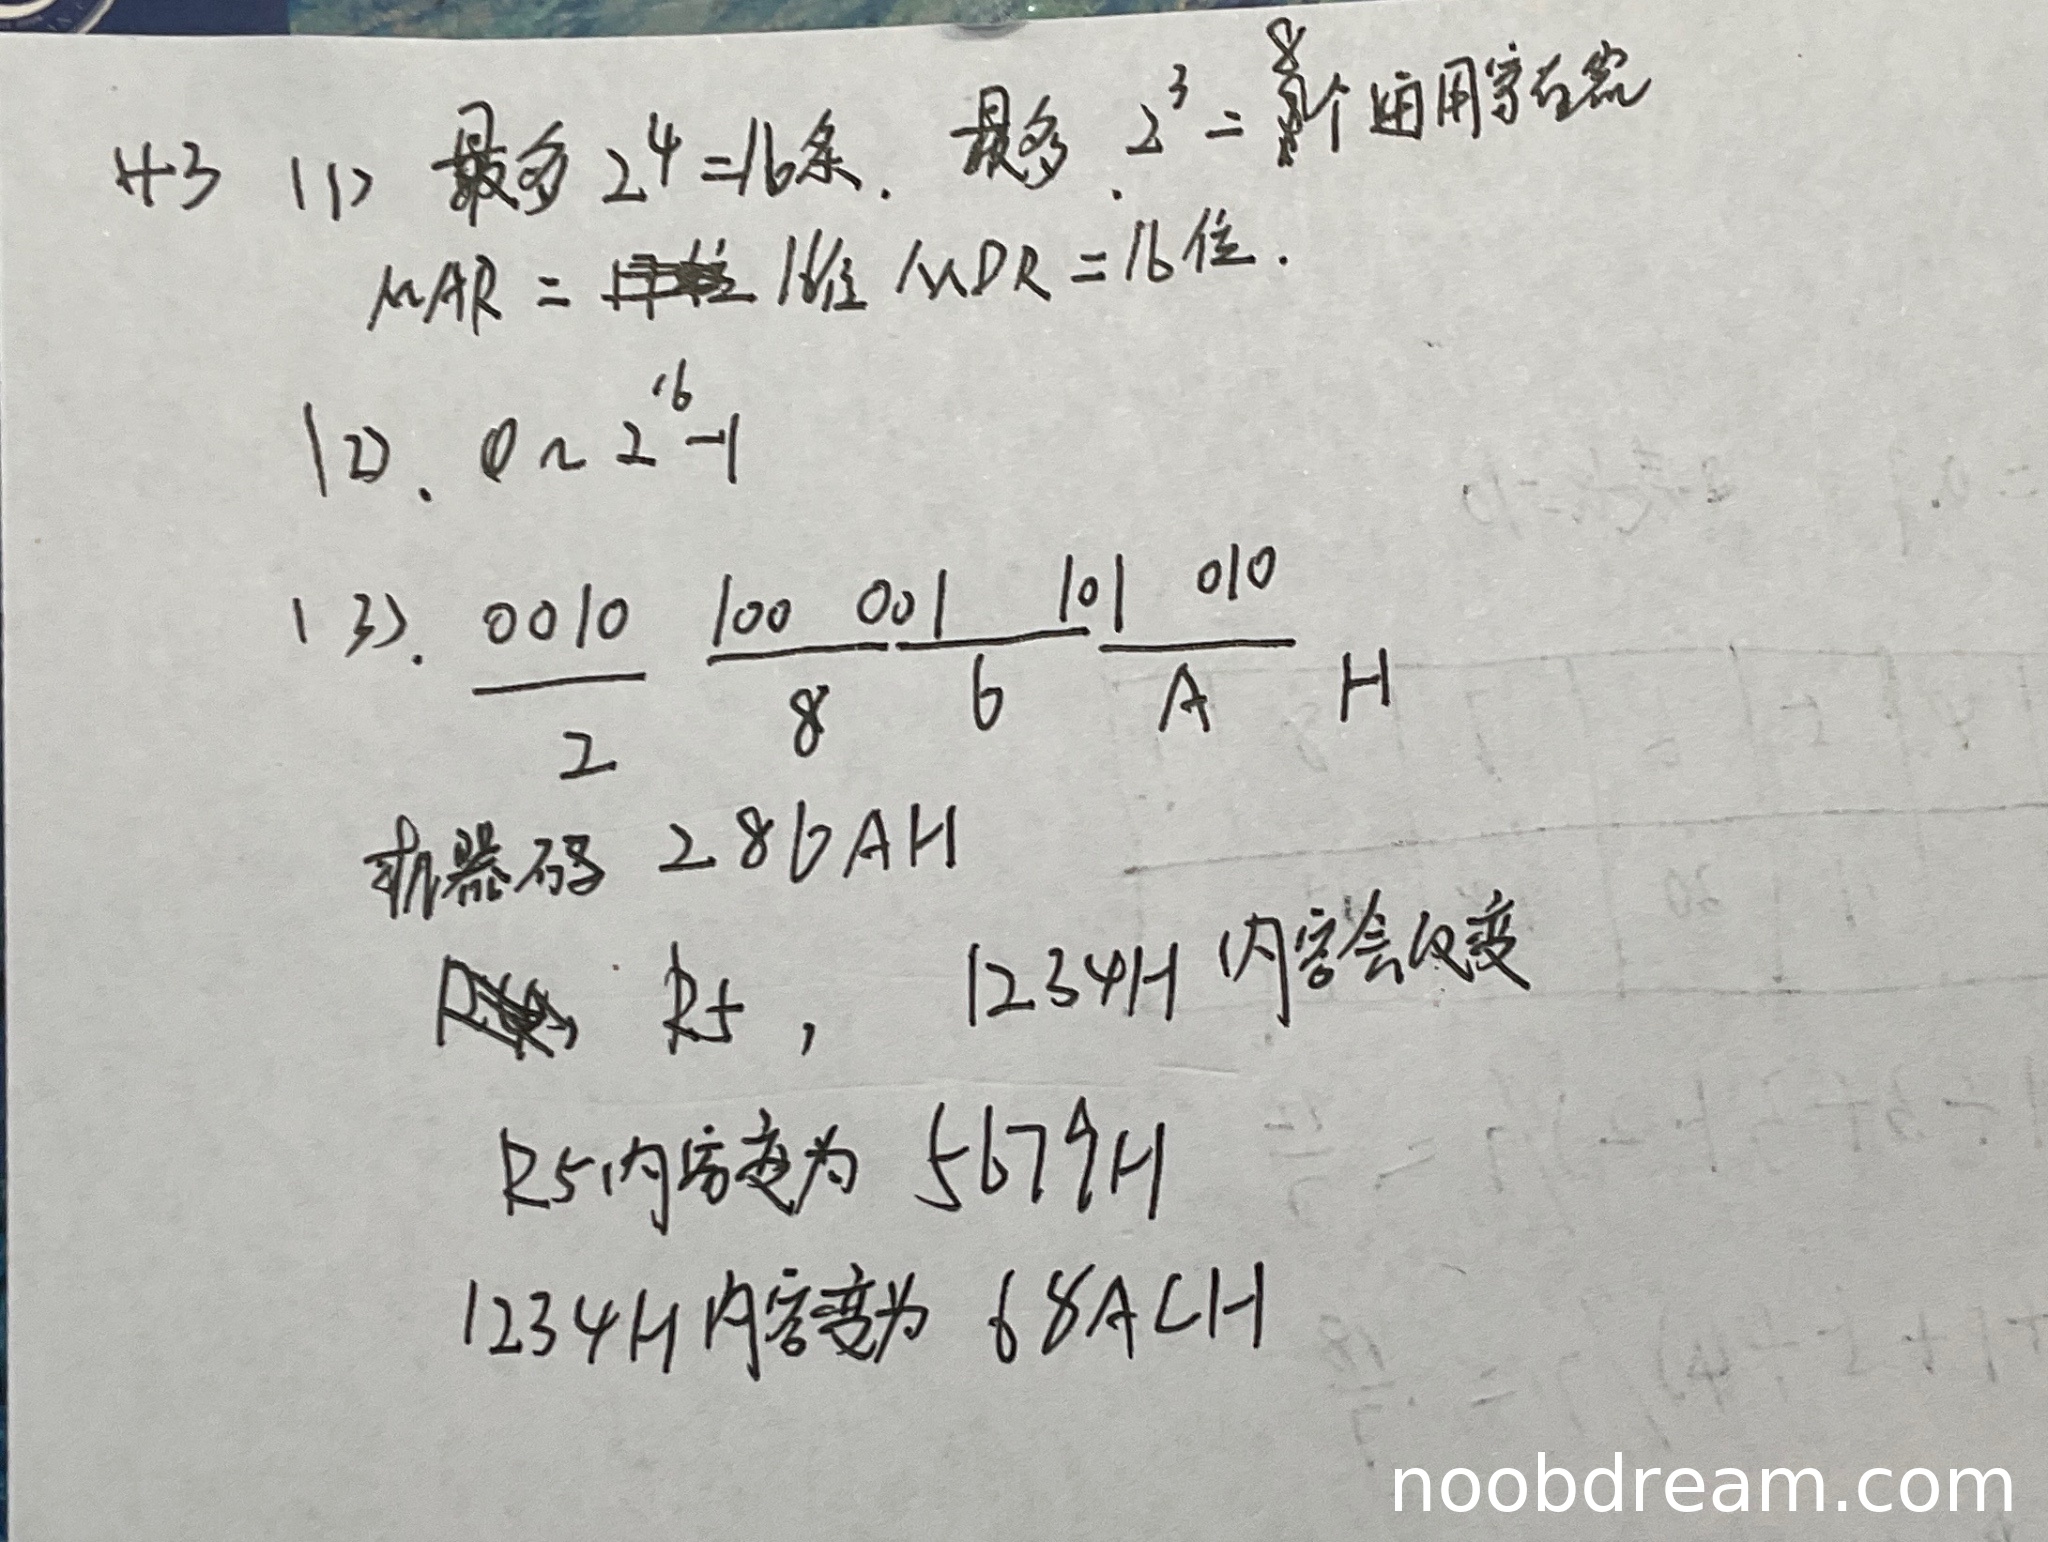 43 (1) 最多 2^4=16条. 最多. 2^3=8个通用寄存器
MAR = 16位 MDR=16位.
(2). 0~2^16-1
(3). 0010 100 001 101 010
2 8 6 A H
机器码 286AH
R5, 1234H 内容会改变
R5内容变为 5679H
1234H内容变为 68ACH
noobdream.com